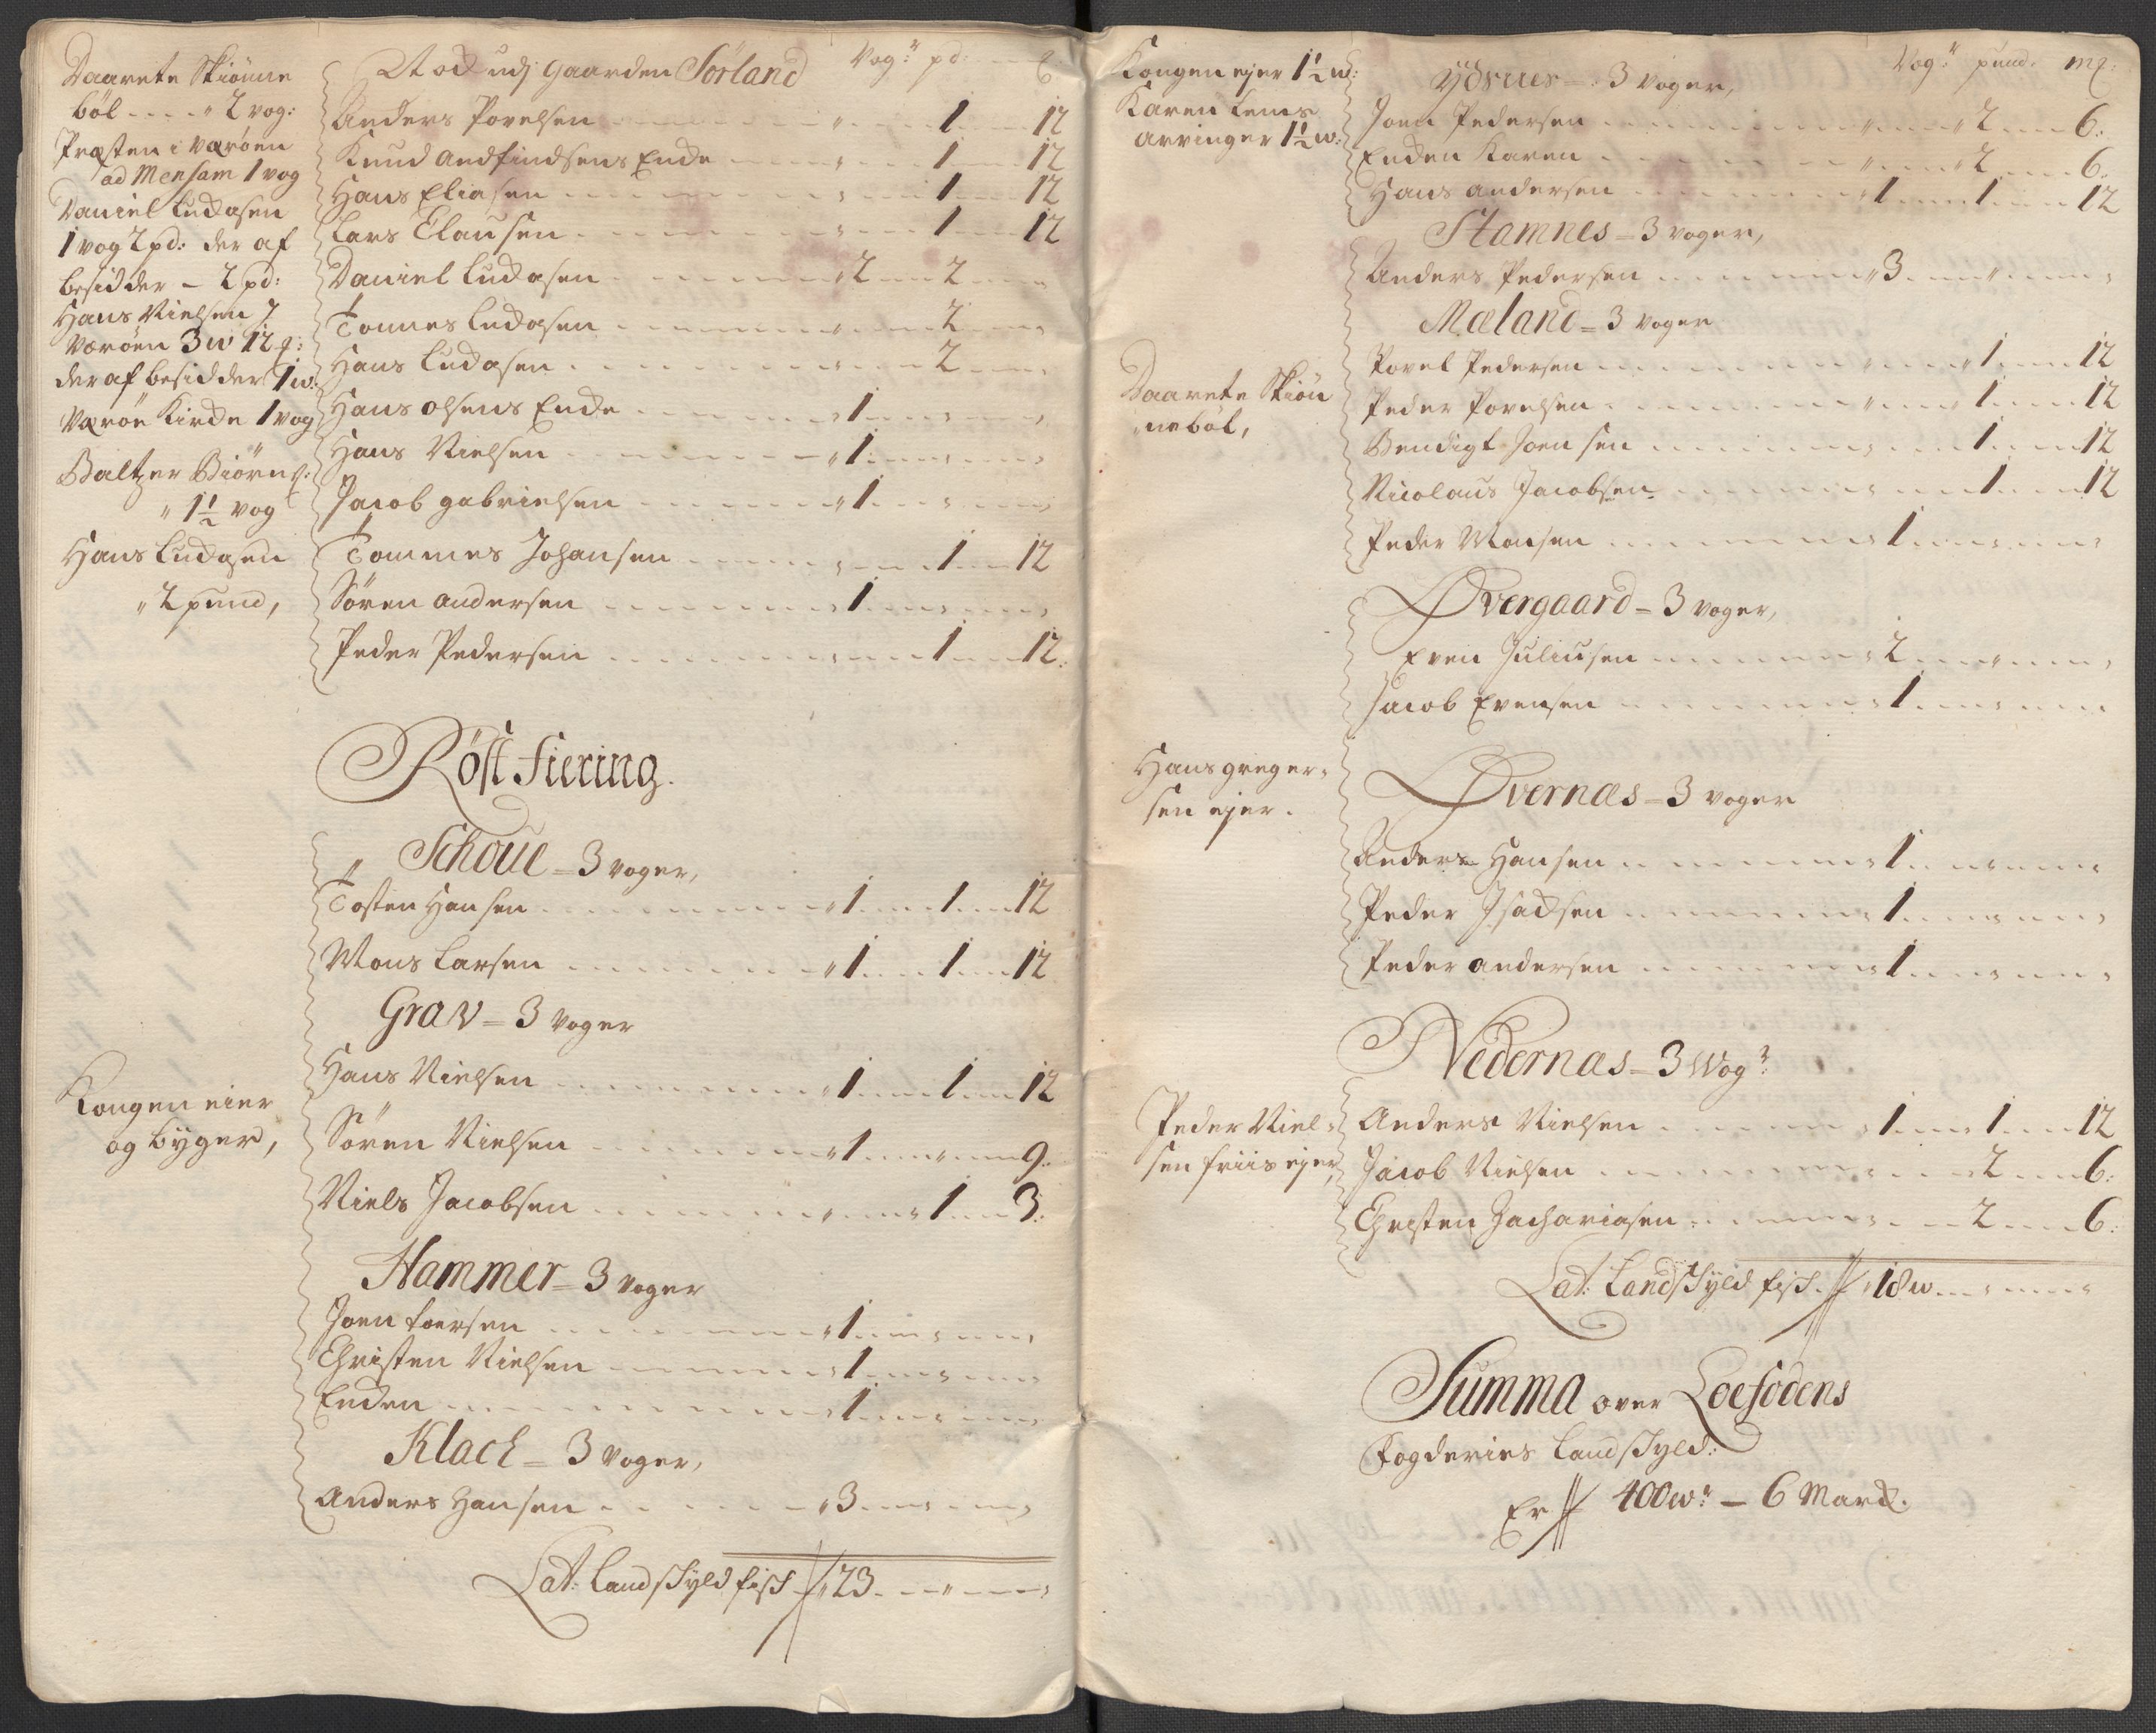 Daarete Skiönne
böl - - - - " 2 vog:
Præsten i Værøen
ad Mensam 1 vog
Daniel Ludvigsen
1 vog 2 pd: der af
besidder - 2 pd:
Hans Nielsen J
Værøen 3 w 12 :
der af besidder 1 w:
Værøe Kirche 1 vog
Baltzer Biörns:
" 1 1/2 vog
Hans Ludvigsen
" 2 pund,
Kongen eier
og byger,
udj gaarden Sörland Vog:r pd:
Anders Povelsen 1 12
Knud Andfindsens Enche 1 12
Hans Eliasen 1 12
Lars Clausen 1 12
Daniel Ludvigsen 2 2
Tonnes Ludvigsen 2
Hans Ludvigsen 2
Hans olsens Enche 1
Hans Nielsen 1
Jacob gabrielsen 1
Tommes Johansen 1 12
Sören Andersen 1
Peder Pedersen 1 12:
Röst Fiering.
Schoue = 3 voger,
Tosten Hansen 1 1 12
Mons Larsen 1 1 12
Grav = 3 voger
Hans Nielsen 1 1 12
Sören Nielsen 1 9:
Niels Jacobsen 1 3:
Hammer = 3 voger
Joen Toersen 1
Christen Nielsen 1
Enchen 1
Klack = 3 voger,
Anders Hansen 3
Lat: Landschyld fisch 23
Kongen ejer 1 1/2 w:
Karen Lems
arvinger 1 1/2 w:
Daarete Skiön
nebøl,
Hans greger-
sen ejer.
Peder Niel-
sen friis ejer,
Ydsnes = 3 voger, Vog:r pund: mk:
Joen Pedersen 2 6:
Enchen Karen 2 6:
Hans Andersen 1 1 12
Stamnes = 3 voger,
Anders Pedersen 3
Mæland = 3 voger
Povel Pedersen 1 12
Peder Povelsen 1 12
Bendigt Joensen 1 12
Nicolaus Jacobsen 1 12
Peder Monsen 1
Øvergaard = 3 voger,
Even Juliusen 2
Jacob Evensen 1
Øvernæs = 3 voger
Anders Hansen 1
Peder Isachsen 1
Peder Andersen 1
Nedernæs = 3 Wog:r
Anders Nielsen 1 1 12
Jacob Nielsen 2 6:
Christen Zachariasen 2 6:
Lat: Landschyld fisch 18 w
Summa over Loefodens
Fogderies Landschyld:
Er 400 w:r - 6 March.